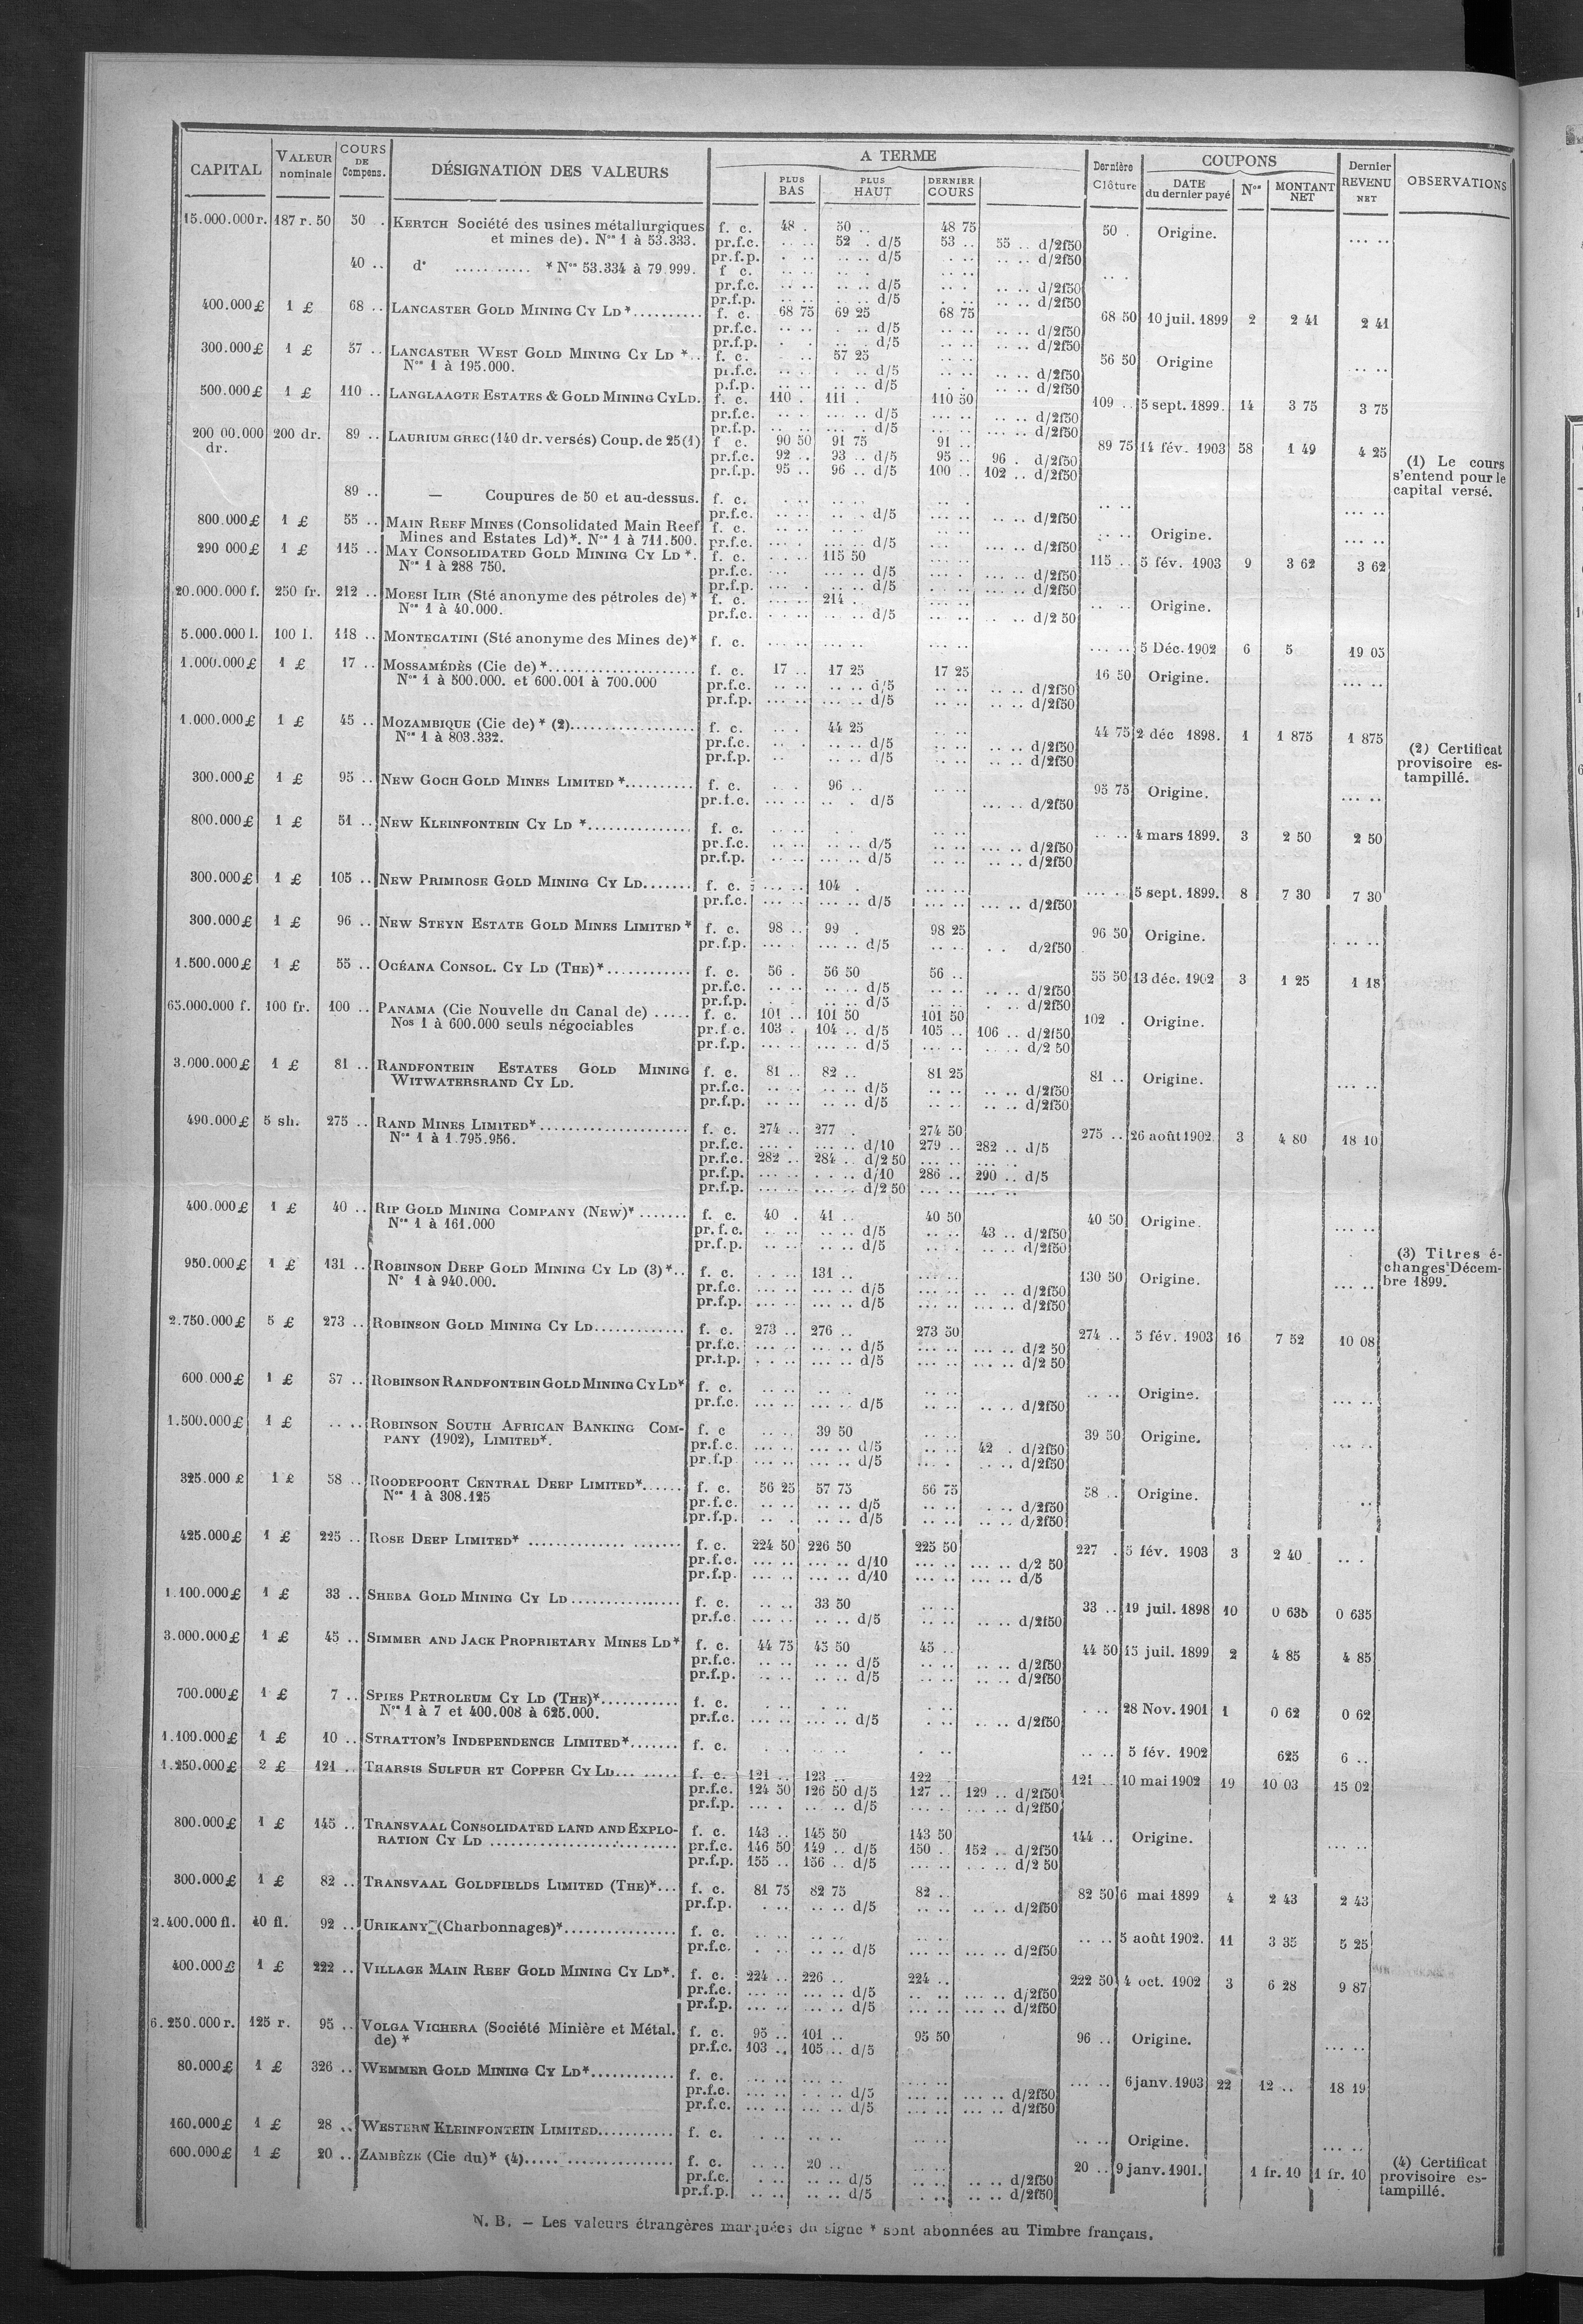 CAPITAL VALEUR nominale COURS DE Compens. DÉSIGNATION DES VALEURS A TERME PLUS BAS PLUS HAUT DERNIER COURS Dernière Clôture COUPONS DATE du dernier payé Nos MONTANT NET Dernier REVENU NET OBSERVATIONS
15.000.000 r. 187 r. 50 50 . KERTCH Société des usines métallurgiques f. c. 48 . 50 .. 48 75 50 . Origine. ... ..
et mines de). Nos 1 à 53.333. pr.f.c. .. .. 52 . d/5 53 .. 55 .. d/2f50
pr.f.p. . .. .. .. d/5 . .. .. .. d/2f50
40 .. do .......... * Nos 53.334 à 79.999. f c. .. .. .. . .. ..
pr.f.c. .. .. .. .. d/5 .. . .. .. d/2f50
pr.f.p. .. .. .. .. d/5 . .. .. .. d/2f50
400.000 £ 1 £ 68 .. LANCASTER GOLD MINING CY LD *.......... f. c. 68 75 69 25 68 75 68 50 10 juil. 1899 2 2 41 2 41
pr.f.c. .. .. . .. d/5 .. .. .. .. d/2f50
pr.f.p. . . .. . d/5 .. .. .. .. d/2f50
300.000 £ 1 £ 57 .. LANCASTER WEST GOLD MINING CY LD *.. f. c. . .. 57 25 .. .. 56 50 Origine ... ..
Nos 1 à 195.000. pr.f.c. .. .. . .. d/5 .. .. .. .. d/2f50
p.f.p. .. .. ... .. d/5 . . .. .. d/2f50
500.000 £ 1 £ 110 .. LANGLAAGTE ESTATES & GOLD MINING CY LD. f. c. 110 . 111 . 110 50 109 .. 5 sept. 1899. 14 3 75 3 75
pr.f.c. .. .. ... .. d/5 ... .. .. .. d/2f50
pr.f.p. .. .. ... . d/5 ... .. ... .. d/2f50
200 00.000 200 dr. 89 .. LAURIUM GREC (140 dr. versés) Coup. de 25 (1) f c. 90 50 91 75 91 .. 89 75 14 fév. 1903 58 1 49 4 25
dr. pr.f.c. 92 .. 93 .. d/5 95 .. 96 . d/2f50
pr.f.p. 95 .. 96 .. d/5 100 .. 102 .. d/2f50
(1) Le cours
s'entend pour le
capital versé.
89 .. — Coupures de 50 et au-dessus. f. c. . .. .. .. .. . .. .. ... ..
pr.f.c. .. .. .. .. d/5 ... .. .. .. d/2f50
800.000 £ 1 £ 55 .. MAIN REEF MINES (Consolidated Main Reef f. c. .. .. .. .. .. .. . .. Origine. ... ..
Mines and Estates Ld)*. Nos 1 à 711.500. pr.f.c. ... . ... .. d/5 ... ... .. d/2f50
290 000 £ 1 £ 115 .. MAY CONSOLIDATED GOLD MINING CY LD *. f. c. . .. 115 50 ... . 115 .. 5 fév. 1903 9 3 62 3 62
Nos 1 à 288 750. pr.f.c. ... .. ... .. d/5 ... . ... .. d/2f50
pr.f.p. ... . ... .. d/5 . .. ... .. d/2f50
20.000.000 f. 250 fr. 212 .. MOESI ILIR (Sté anonyme des pétroles de) * f. c. ... .. 214 . ... .. .. . Origine.
Nos 1 à 40.000. pr.f.c. ... .. ... .. d/5 ... .. .. .. d/2 50
5.000.000 l. 100 l. 118 .. MONTECATINI (Sté anonyme des Mines de)* f. c. ... .. ... .. ... .. ... .. 5 Déc. 1902 6 5 19 05
1.000.000 £ 1 £ 17 .. MOSSAMÉDÈS (Cie de) *.................... f. c. 17 .. 17 25 17 25 16 50 Origine. ... ..
Nos 1 à 500.000. et 600.001 à 700.000 pr.f.c. .. .. .. .. d/5 .. .. .. .. d/2f50
pr.f.p. ... .. ... .. d/5 .. .. .. .. d/2f50
1.000.000 £ 1 £ 45 .. MOZAMBIQUE (Cie de) * (2)................. f. c. .. . 44 25 .. .. 44 75 2 déc 1898. 1 1 875 1 875
Nos 1 à 803.332. pr.f.c. .. . .. .. d/5 .. .. .. .. d/2f50
pr.f.p. .. .. .. d/5 .. .. .. .. d/2f50
(2) Certificat
provisoire es-
tampillé.
300.000 £ 1 £ 95 .. NEW GOCH GOLD MINES LIMITED *.......... f. c. . . 96 .. .. .. 95 75 Origine. ... ..
pr.f.c. ... .. .. . d/5 ... .. d/2f50
800.000 £ 1 £ 51 .. NEW KLEINFONTEIN CY LD *............... f. c. .. .. . . .. .. .. .. 4 mars 1899. 3 2 50 2 50
pr.f.c. .. .. .. .. d/5 .. .. ... .. d/2f50
pr.f.p. .. .. ... .. d/5 .. .. .. .. d/2f50
300.000 £ 1 £ 105 .. NEW PRIMROSE GOLD MINING CY LD....... f. c. ... .. 104 . ... .. ... . 5 sept. 1899. 8 7 30 7 30
pr.f.c. ... .. ... .. d/5 ... .. ... .. d/2f50
300.000 £ 1 £ 96 .. NEW STEYN ESTATE GOLD MINES LIMITED * f. c. 98 .. 99 . 98 25 96 50 Origine. .. ..
pr.f.p. ... . ... .. d/5 .. .. . . d/2f50
1.500.000 £ 1 £ 55 .. OCÉANA CONSOL. CY LD (THE)*............ f. c. 56 . 56 50 56 .. 55 50 13 déc. 1902 3 1 25 1 18
pr.f.c. .. .. .. .. d/5 .. .. .. .. d/2f50
pr.f.p. . . .. .. d/5 .. .. . .. d/2f50
65.000.000 f. 100 fr. 100 .. PANAMA (Cie Nouvelle du Canal de) ..... f. c. 101 .. 101 50 101 50 102 . Origine.
Nos 1 à 600.000 seuls négociables pr.f.c. 103 . 104 .. d/5 105 .. 106 .. d/2f50
pr.f.p. ... .. ... .. d/5 ... .. .. .. d/2 50
3.000.000 £ 1 £ 81 .. RANDFONTEIN ESTATES GOLD MINING f. c. 81 .. 82 .. 81 25 81 .. Origine. ... ..
WITWATERSRAND CY LD. pr.f.c. .. .. .. .. d/5 .. .. .. .. d/2f50
pr.f.p. .. .. .. .. d/5 .. .. .. .. d/2f50
490.000 £ 5 sh. 275 .. RAND MINES LIMITED*..................... f. c. 274 .. 277 . 274 50 275 .. 26 août 1902. 3 4 80 18 10
Nos 1 à 1.795.956. pr.f.c. ... . ... .. d/10 279 .. 282 .. d/5
pr.f.c. 282 .. 284 .. d/2 50 ... .. ... ..
pr.f.p. ... .. . . .. d/10 286 .. 290 .. d/5
pr.f.p. ... .. ... .. d/2 50 ... .. ... ..
400.000 £ 1 £ 40 .. RIP GOLD MINING COMPANY (NEW)* ....... f. c. 40 . 41 .. 40 50 40 50 Origine. ... ..
Nos 1 à 161.000 pr.f.c. . .. .. .. d/5 .. .. 43 .. d/2f50
pr.f.p. .. .. .. .. d/5 .. . .. .. d/2f50
950.000 £ 1 £ 131 .. ROBINSON DEEP GOLD MINING CY LD (3)*.. f. c. . .. .. 131 .. ... .. 130 50 Origine. ... ..
No 1 à 940.000. pr.f.c. ... .. ... .. d/5 ... .. ... .. d/2f50
pr.f.p. ... .. ... .. d/5 ... .. ... .. d/2f50
(3) Titres é-
changes Décem-
bre 1899.
2.750.000 £ 5 £ 273 .. ROBINSON GOLD MINING CY LD............. f. c. 273 .. 276 .. 273 50 274 .. 5 fév. 1903 16 7 52 10 08
pr.f.c. ... . ... .. d/5 ... .. ... .. d/2 50
pr.f.p. . . .. ... .. d/5 ... .. ... .. d/2 50
600.000 £ 1 £ 37 .. ROBINSON RANDFONTEIN GOLD MINING CY LD* f. c. .. .. .. .. .. .. .. .. Origine. ... ..
pr.f.c. ... .. ... .. d/5 .. .. .. .. d/2f50
1.500.000 £ 1 £ .. .. ROBINSON SOUTH AFRICAN BANKING COM- f. c .. .. 39 50 .. .. 39 50 Origine. ... ..
PANY (1902), LIMITED*. pr.f.c. ... .. ... .. d/5 .. .. 42 . d/2f50
pr.f.p ... .. ... .. d/5 .. . .. .. d/2f50
325.000 £ 1 £ 58 .. ROODEPOORT CENTRAL DEEP LIMITED*...... f. c. 56 25 57 75 56 75 58 .. Origine. ..
Nos 1 à 308.125 pr.f.c. .. .. .. .. d/5 .. .. . .. d/2f50
pr.f.p. .. . .. .. d/5 .. .. .. .. d/2f50
425.000 £ 1 £ 225 .. ROSE DEEP LIMITED* ............. ....... f. c. 224 50 226 50 225 50 227 . 5 fév. 1903 3 2 40 .. .
pr.f.c. ... .. ... .. d/10 ... .. ... .. d/2 50
pr.f.p. ... .. ... .. d/10 ... .. ... .. d/5
1.100.000 £ 1 £ 33 .. SHEBA GOLD MINING CY LD ................ f. c. .. .. 33 50 .. .. 33 .. 19 juil. 1898 10 0 635 0 635
pr.f.c. ... .. .. .. d/5 .. .. .. .. d/2f50
3.000.000 £ 1 £ 45 .. SIMMER AND JACK PROPRIETARY MINES LD* f. c. 44 75 45 50 45 .. 44 50 15 juil. 1899 2 4 85 4 85
pr.f.c. .. .. .. .. d/5 .. .. .. .. d/2f50
pr.f.p. .. .. .. .. d/5 .. .. .. .. d/2f50
700.000 £ 1 £ 7 .. SPIES PETROLEUM CY LD (THE)*........... f. c. . .. . .. .. . .. 28 Nov. 1901 1 0 62 0 62
Nos 1 à 7 et 400.008 à 625.000. pr.f.c. ... .. ... .. d/5 . .. .. .. d/2f50
1.100.000 £ 1 £ 10 .. STRATTON'S INDEPENDENCE LIMITED*....... f. c. . . .. .. . .. .. .. 5 fév. 1902 625 6 ..
1.250.000 £ 2 £ 121 .. THARSIS SULFUR ET COPPER CY LD... ..... f. c. 121 .. 123 .. 122 .. 121 .. 10 mai 1902 19 10 03 15 02
pr.f.c. 124 50 126 50 d/5 127 .. 129 .. d/2f50
pr.f.p. ... . .. .. d/5 ... .. ... .. d/2f50
800.000 £ 1 £ 145 .. TRANSVAAL CONSOLIDATED LAND AND EXPLO- f. c. 143 .. 145 50 143 50 144 .. Origine. ... ..
RATION CY LD .......................... pr.f.c. 146 50 149 .. d/5 150 . 152 .. d/2f50
pr.f.p. 155 .. 156 .. d/5 ... .. .. .. d/2 50
300.000 £ 1 £ 82 .. TRANSVAAL GOLDFIELDS LIMITED (THE)*... f. c. 81 75 82 75 82 .. 82 50 6 mai 1899 4 2 43 2 43
pr.f.p. . .. .. .. d/5 .. .. .. .. d/2f50
2.400.000 fl. 40 fl. 92 .. URIKANY (Charbonnages)*................ f. c. .. .. .. .. .. .. .. .. 5 août 1902. 11 3 35 5 25
pr.f.c. . .. .. .. d/5 ... .. ... .. d/2f50
400.000 £ 1 £ 222 .. VILLAGE MAIN REEF GOLD MINING CY LD*. f. c. 224 .. 226 .. 224 .. 222 50 4 oct. 1902 3 6 28 9 87
pr.f.c. ... .. ... .. d/5 .. .. ... .. d/2f50
pr.f.p. ... .. ... .. d/5 ... .. ... .. d/2f50
6.250.000 r. 125 r. 95 .. VOLGA VICHERA (Société Minière et Métal. f. c. 95 .. 101 .. 95 50 96 .. Origine. ... ..
de) * pr.f.c. 103 .. 105 .. d/5
80.000 £ 1 £ 326 .. WEMMER GOLD MINING CY LD*............ f. c. ... .. ... .. ... .. ... .. 6 janv. 1903 22 12 .. 18 19
pr.f.c. ... .. . .. .. d/5 ... .. ... .. d/2f50
pr.f.c. ... .. ... .. d/5 ... .. ... .. d/2f50
160.000 £ 1 £ 28 .. WESTERN KLEINFONTEIN LIMITED........... f. c. . .. .. .. .. .. .. .. Origine. ... ..
600.000 £ 1 £ 20 .. ZAMBÈZE (Cie du)* (4)..... ............... f. c. . .. 20 .. .. .. 20 .. 9 janv. 1901. 1 fr. 10 1 fr. 10
pr.f.c. . .. .. .. d/5 .. .. .. .. d/2f50
pr.f.p. .. .. .. .. d/5 . .. .. .. d/2f50
(4) Certificat
provisoire es-
tampillé.
N. B. — Les valeurs étrangères marquées du signe * sont abonnées au Timbre français.